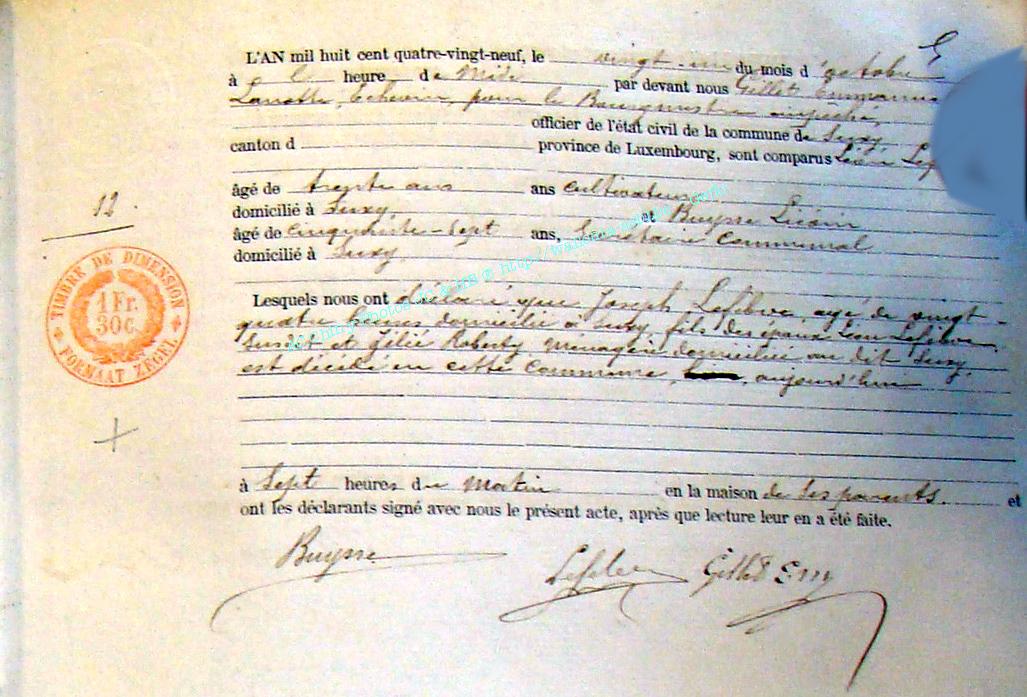 L'AN mil huit cent quatre-vingt-neuf, le vingt-un du mois d'octobre
à heure de Midi par devant nous Gillet
Echevin, pour le Bourgmestre empêché,
officier de l'état civil de la commune de Suxy,
canton d province de Luxembourg, sont comparus
âgé de trente ans ans cultivateur
domicilié à Suxy et Buysse
âgé de cinquante-sept ans, Secrétaire Communal
domicilié à Suxy
Lesquels nous ont déclaré que Joseph Lefèbvre agé de vingt-
quatre heures domicilié à Suxy, fils des époux Lefèbvre
susdit et Roberty ménagère domiciliée au dit Suxy,
est décédé en cette commune, aujourd'hui
à Sept heures du Matin en la maison de ses parents. et
ont les déclarants signé avec nous le présent acte, après que lecture leur en a été faite.
Buysse Lefebvre Gillet Em
12.
TIMBRE DE DIMENSION
1 Fr.
30C.
FORMAAT ZEGEL